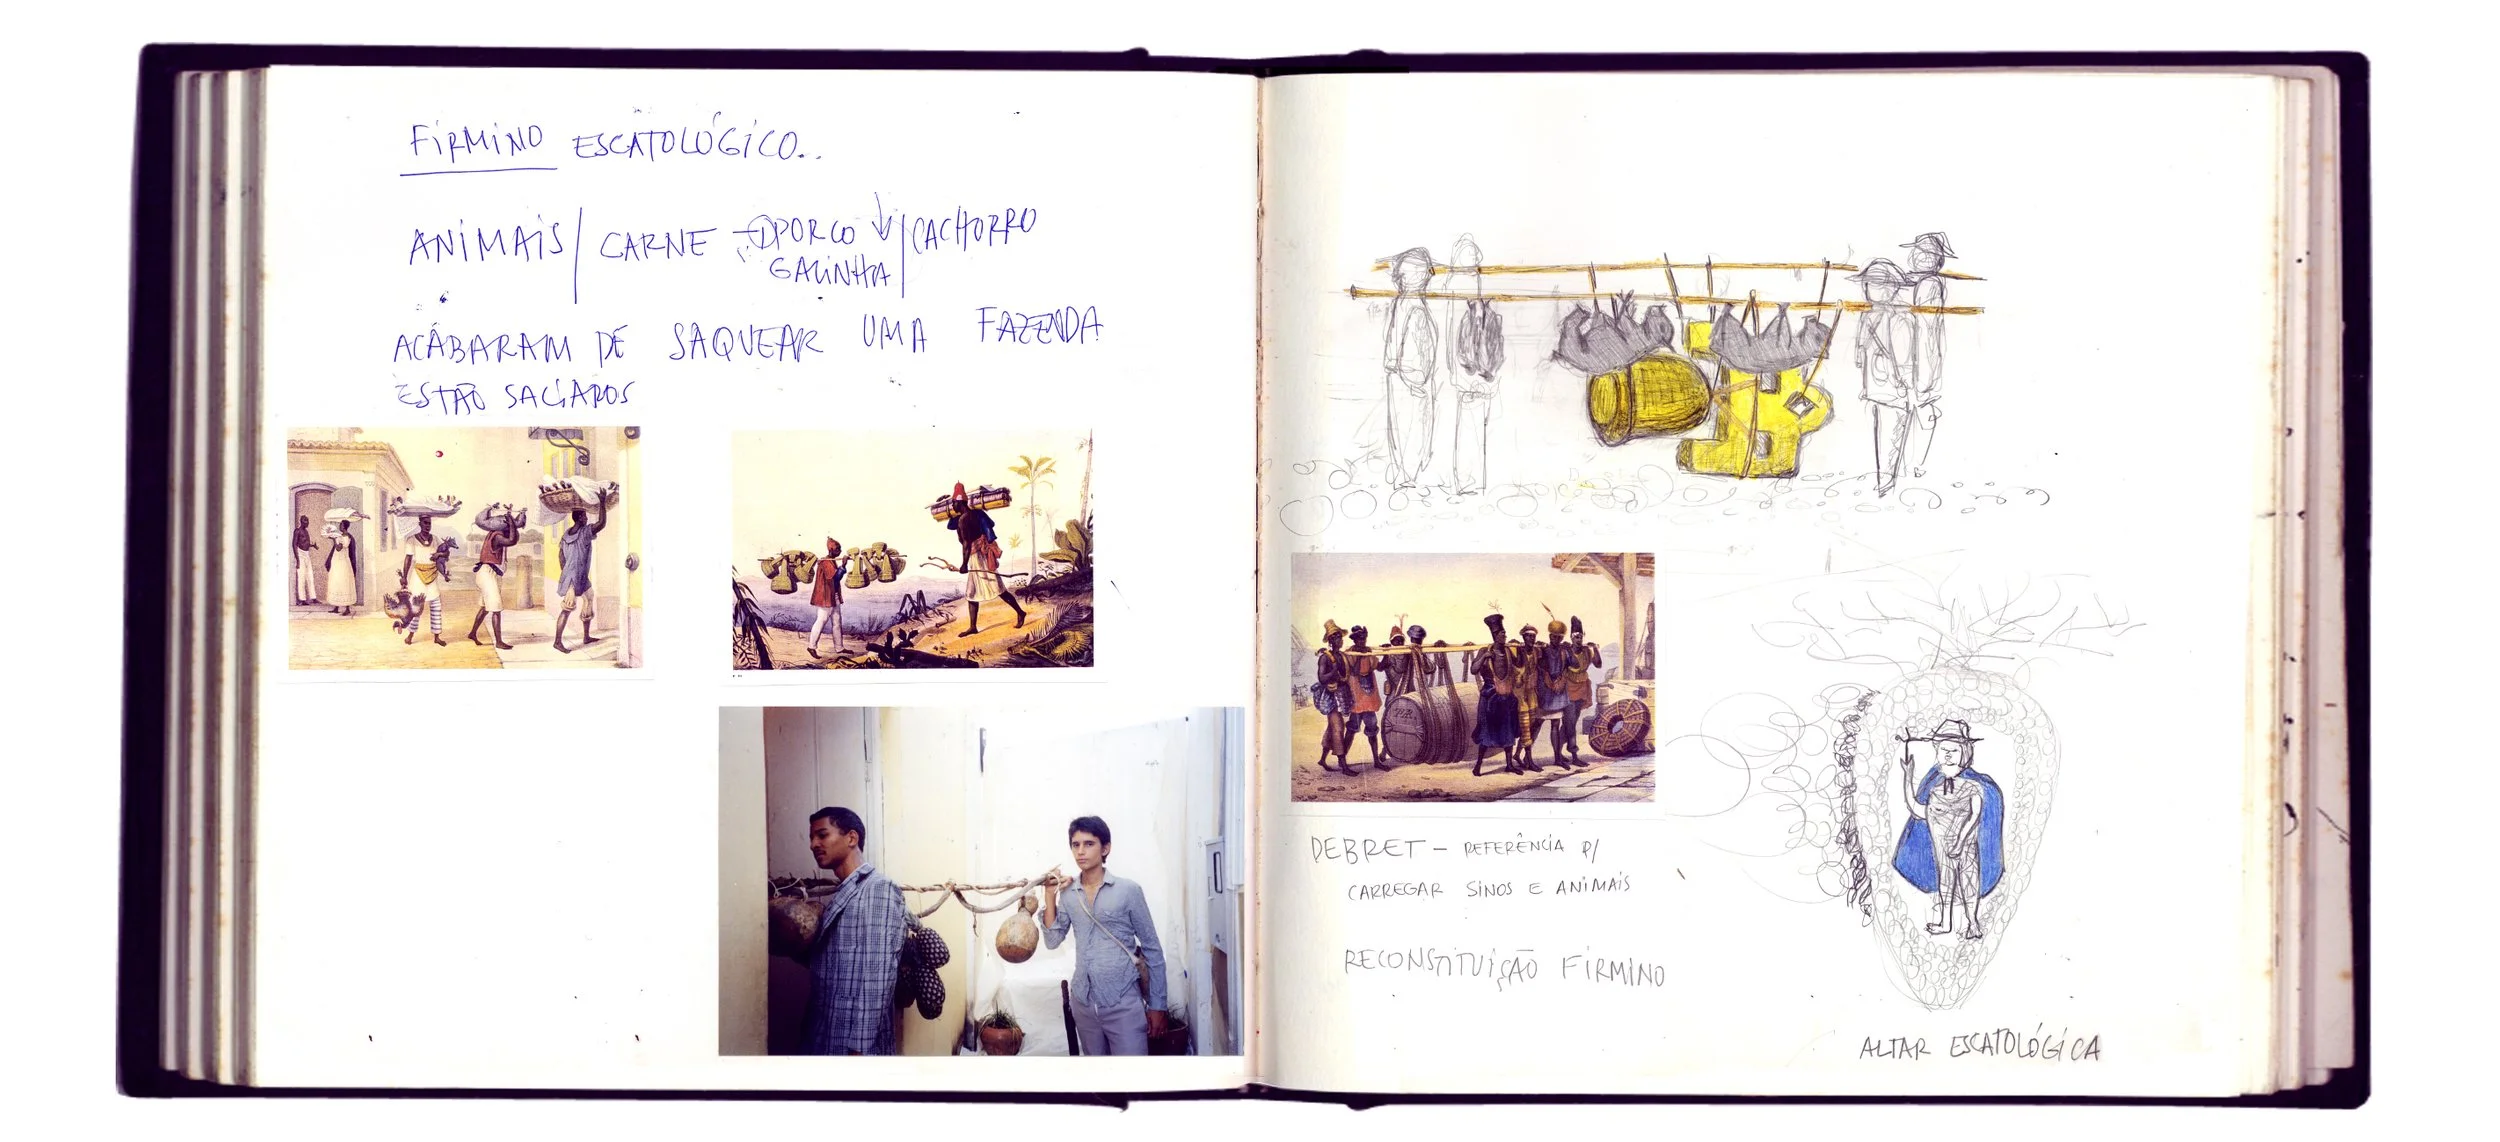 FIRMINO ESCATOLÓGICO..
ANIMAIS / CARNE → PORCO ↓ / CACHORRO
GALINHA
ACABARAM DE SAQUEAR UMA FAZENDA
ESTÃO SACIADOS
DEBRET – REFERÊNCIA P/
CARREGAR SINOS E ANIMAIS
RECONSTITUIÇÃO FIRMINO
ALTAR ESCATOLÓGICA